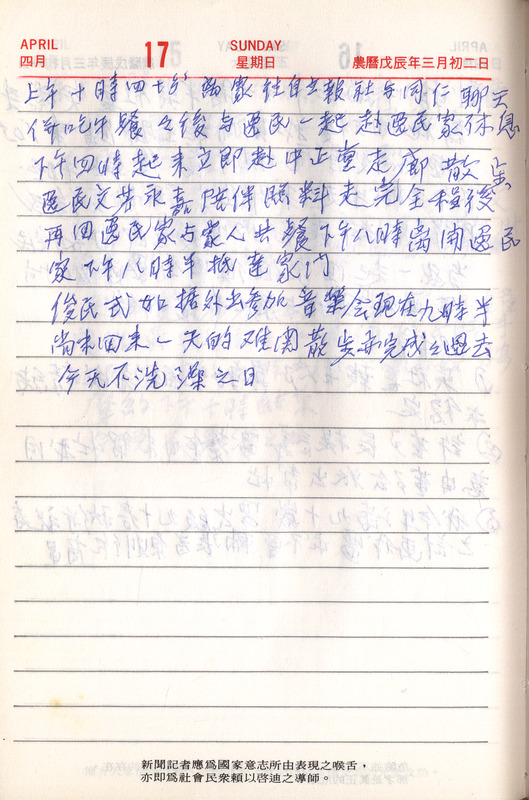 APRIL 17 SUNDAY
四月 星期日 農曆戊辰年三月初二日
上午十時四十分離家往自立報社与同仁聊天
併吃午餐之後与惠民一起赴惠民家休息
下午四時起来立即赴中正堂走廊散步
惠民文芳永嘉陪伴照料走完全程後
再回惠民家与家人共餐下午八時离開惠民
家下午八時半抵達家门
俊民式如 外出参加音樂会現在九時半
尚未回来一天的难関散步亦完成之過去
今天不洗澡之日
新聞記者應爲國家意志所由表現之喉舌，
亦即爲社會民衆賴以啓迪之導師。